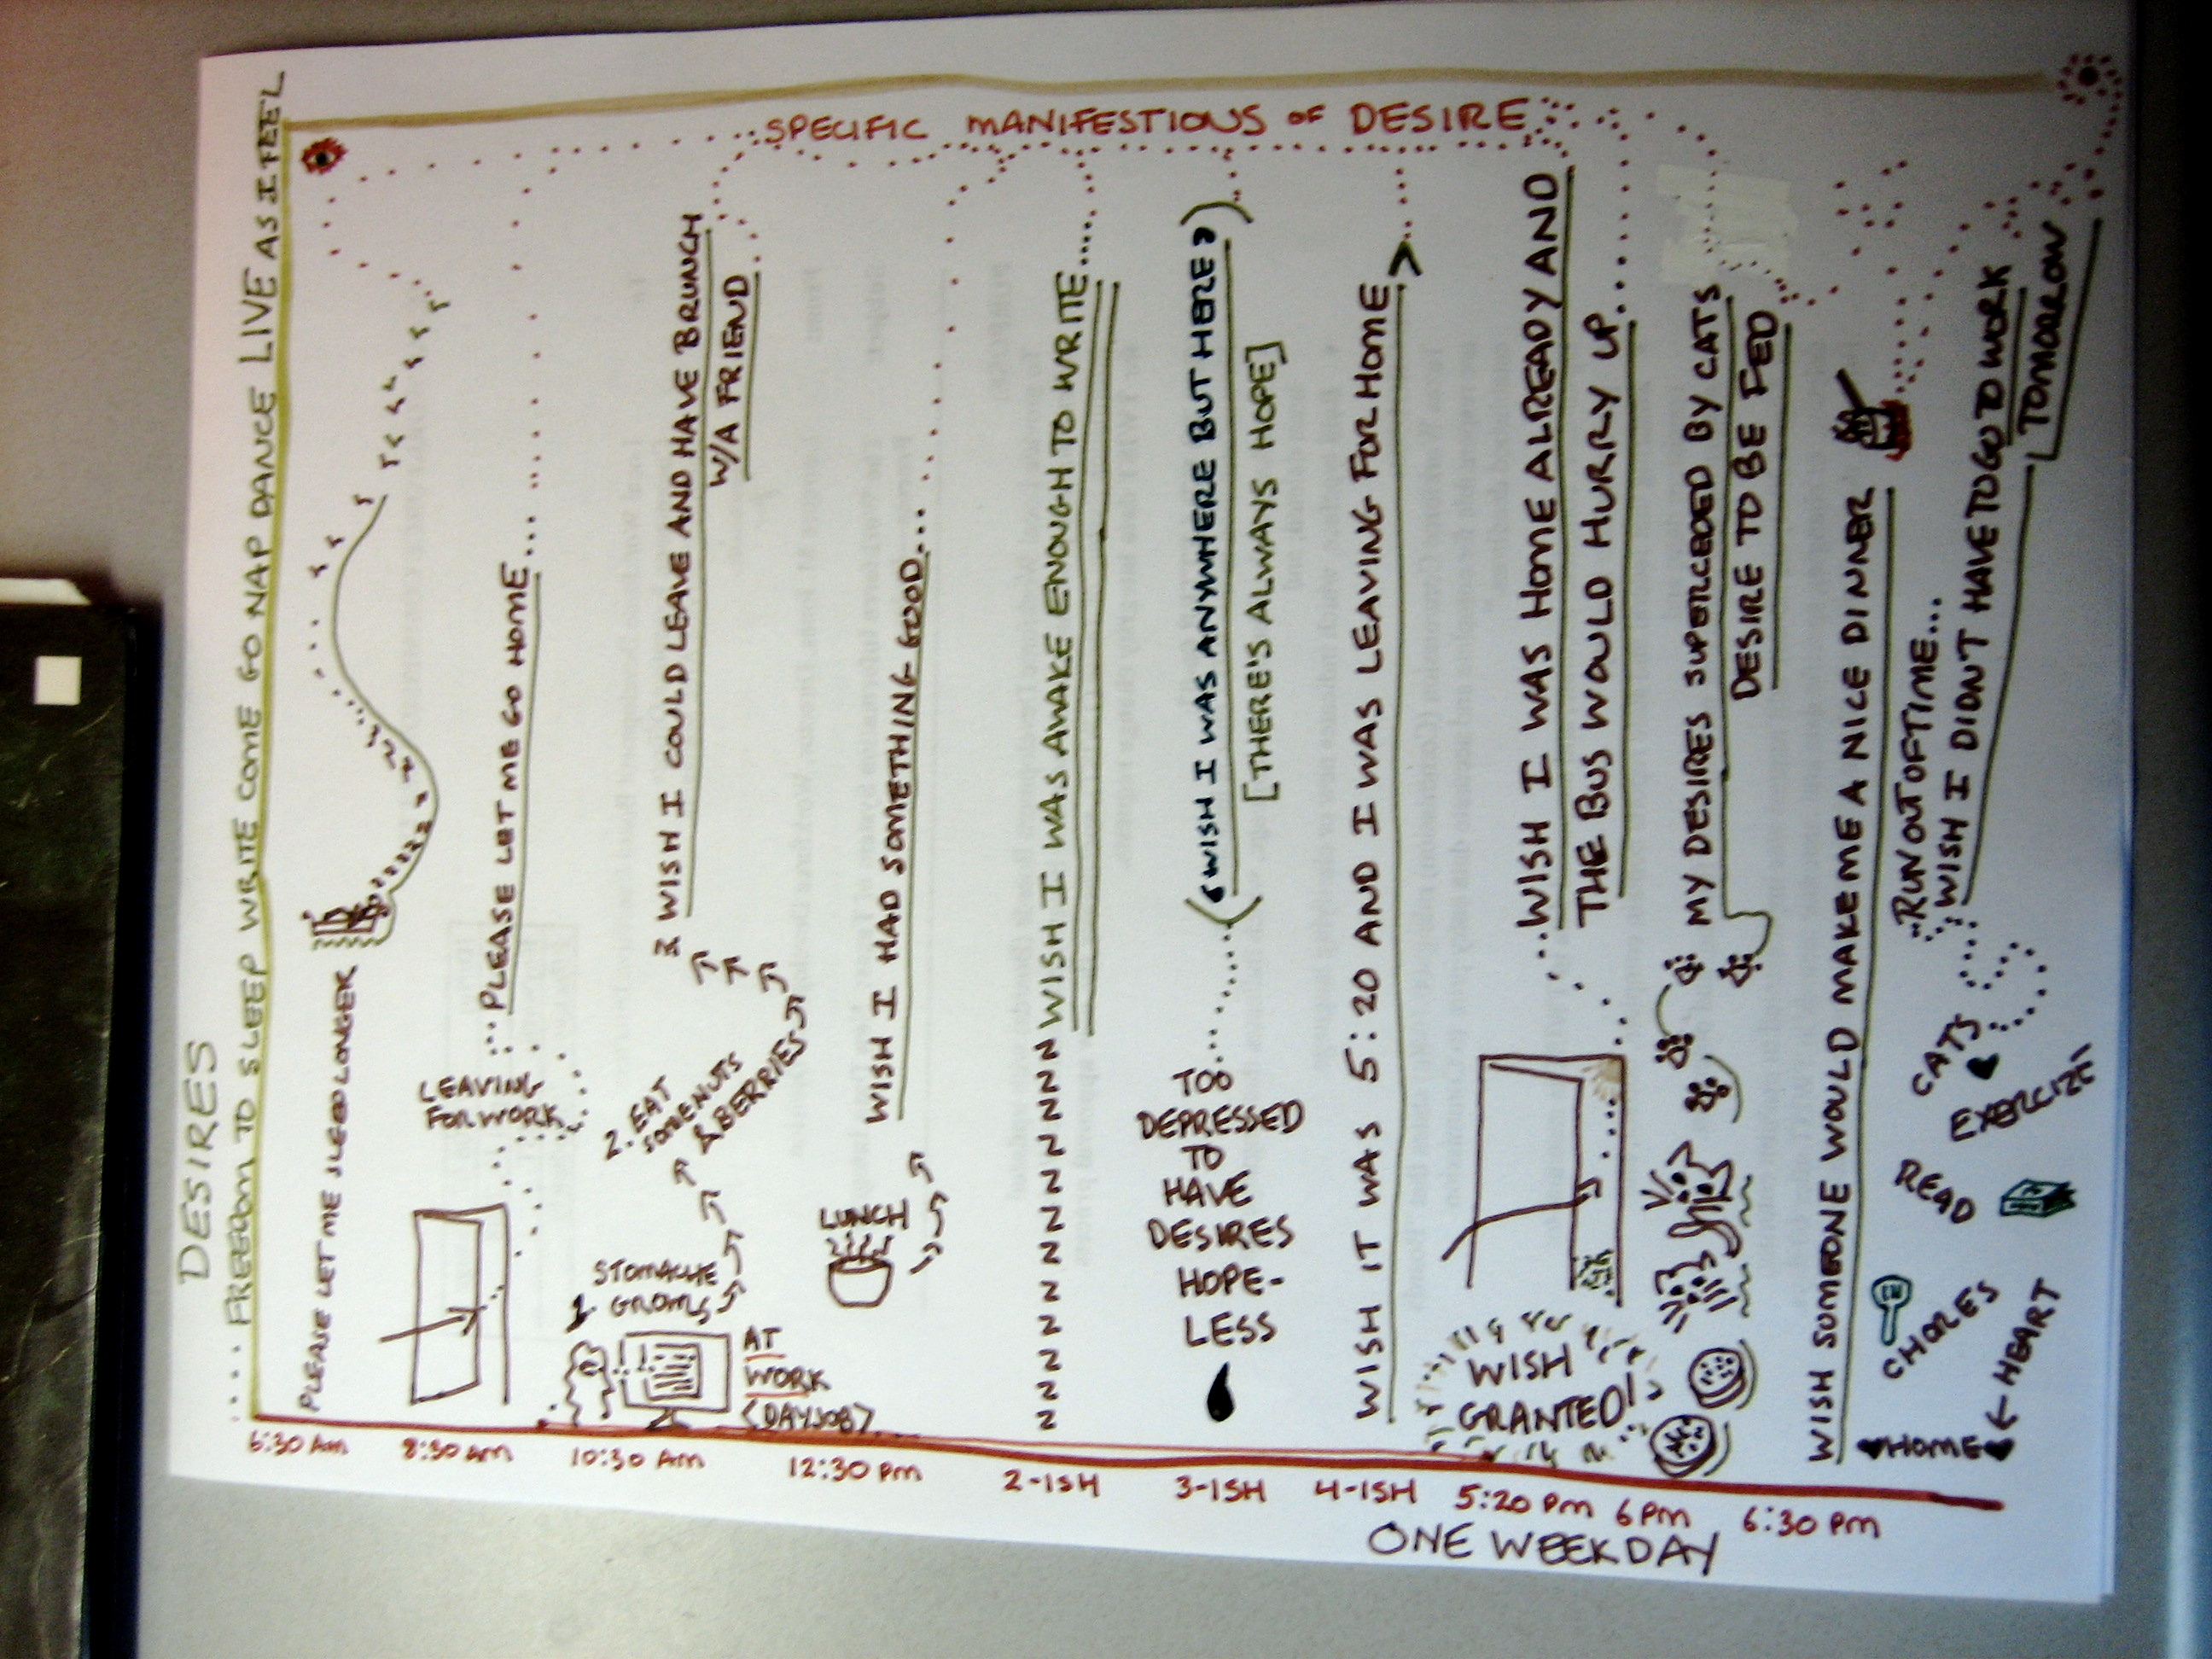 DESIRES
.... FREEDOM TO SLEEP WRITE COME GO NAP DANCE LIVE AS I FEEL
SPECIFIC MANIFESTIONS OF DESIRE
6:30 AM
PLEASE LET ME SLEEP LONGER
8:30 AM
LEAVING
FOR WORK
PLEASE LET ME GO HOME...
10:30 AM
AT
WORK
<DAYJOB>
1. STOMACHE
GROWLS
2. EAT
SOME NUTS
& BERRIES
3. WISH I COULD LEAVE AND HAVE BRUNCH
W/A FRIEND
12:30 PM
LUNCH
WISH I HAD SOMETHING GOOD...
2-ISH
NNNNNNNNNNNNNN WISH I WAS AWAKE ENOUGH TO WRITE.....
3-ISH
TOO
DEPRESSED
TO
HAVE
DESIRES
HOPE-
LESS
(WISH I WAS ANYWHERE BUT HERE)
[THERE'S ALWAYS HOPE]
4-ISH
WISH IT WAS 5:20 AND I WAS LEAVING FOR HOME
5:20 PM
WISH
GRANTED!
WISH I WAS HOME ALREADY AND
THE BUS WOULD HURRY UP...
6 PM
MY DESIRES SUPERCEDED BY CATS
DESIRE TO BE FED
6:30 PM
WISH SOMEONE WOULD MAKE ME A NICE DINNER
HOME
← HEART
CHORES
READ
EXERCIZE
CATS
RUN OUT OF TIME...
WISH I DIDN'T HAVE TO GO TO WORK
TOMOROW
ONE WEEKDAY